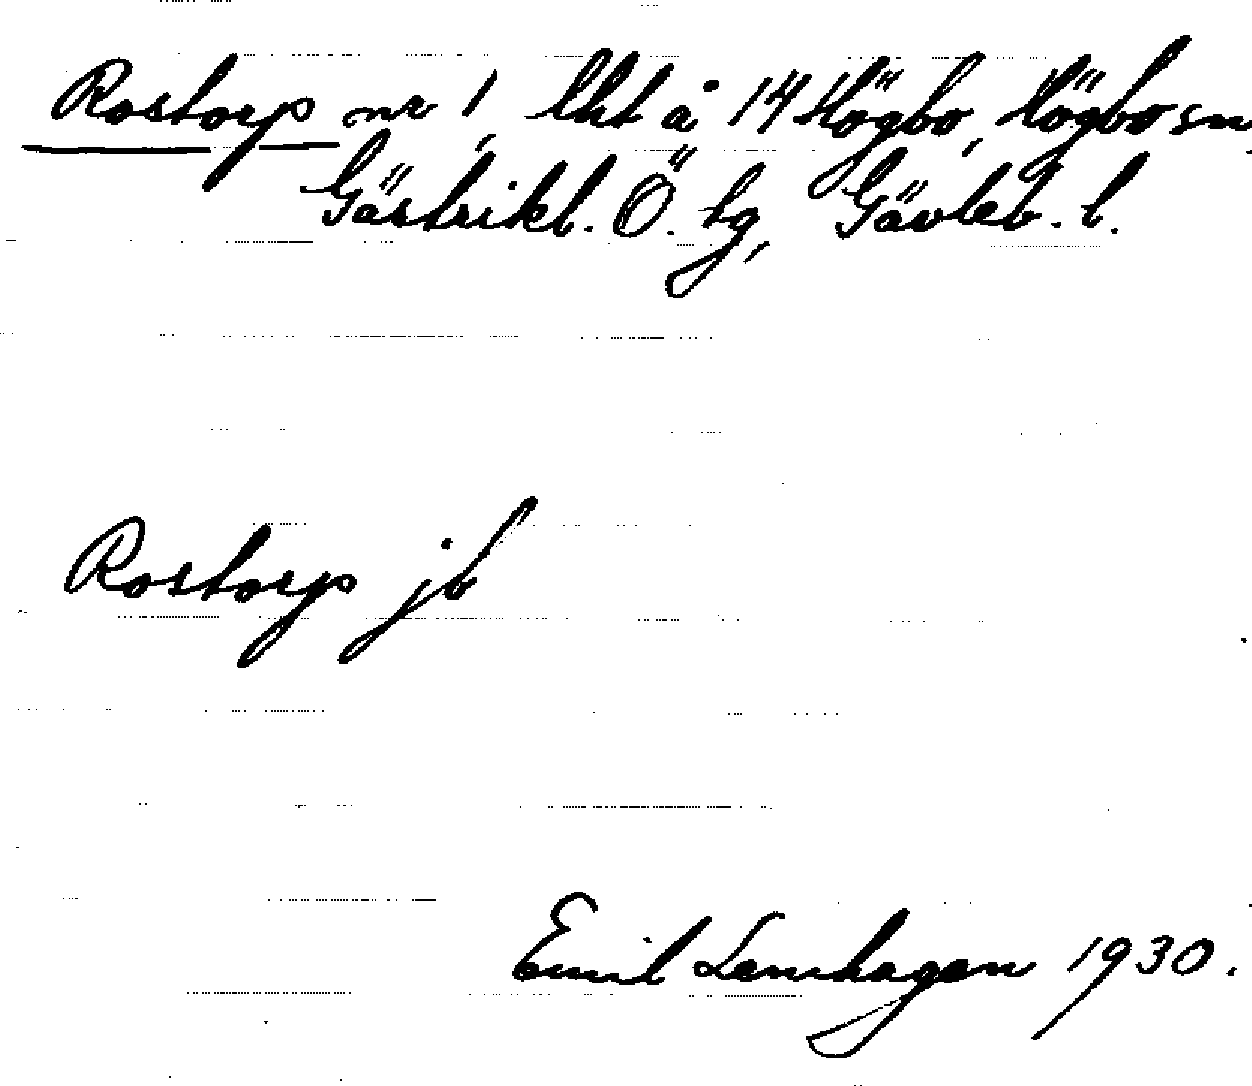 Rostorp nr 1, lht å 14 Högbo, Högbo sn,
Gästrikl. Ö. tg, Gävleb. l.
Rostorp jb
Emil Lenhagen 1930.